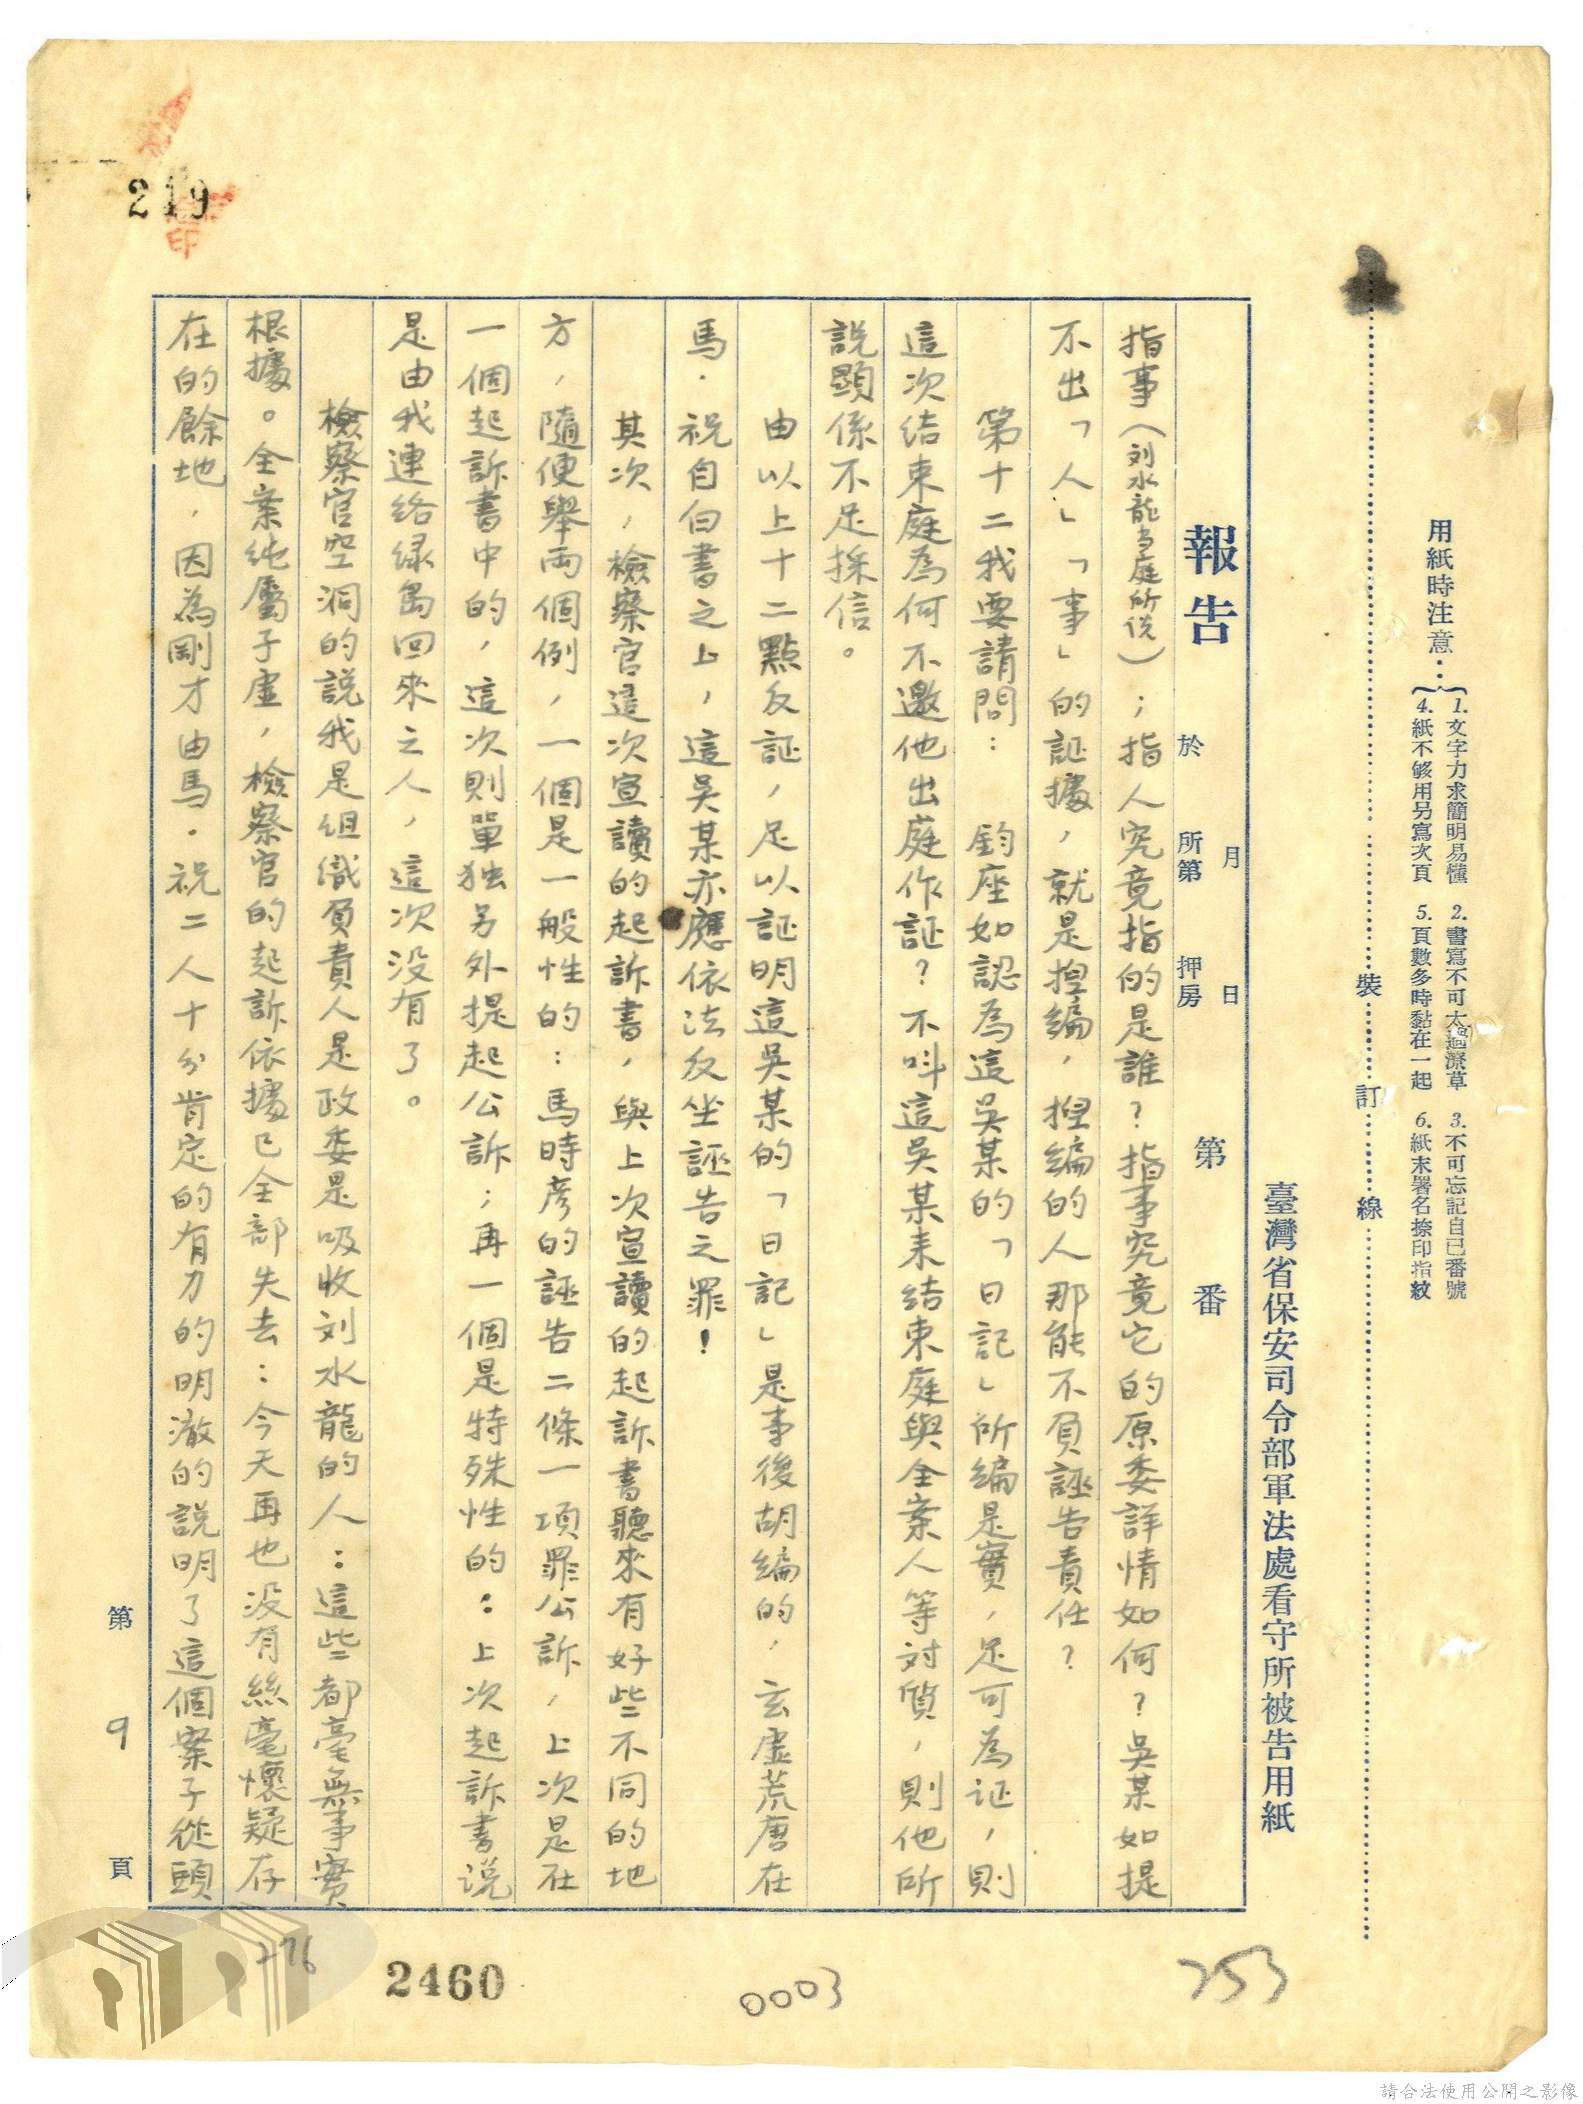 用紙時注意：
1. 文字力求簡明易懂 2. 書寫不可太過潦草 3. 不可忘記自己番號
4. 紙不够用另寫次頁 5. 頁數多時黏在一起 6. 紙末署名捺印指紋
裝 訂 線
臺灣省保安司令部軍法處看守所被告用紙
月 日
報告 於 所第 押房 第 番
指事（刘水龍当庭所說）；指人究竟指的是誰？指事究竟它的原委詳情如何？吳某如提
不出「人」「事」的証據，就是揑編，揑編的人那能不負誣告責任？
第十二我要請問： 鈞座如認為這吳某的「日記」所編是實，足可為证，則
這次结束庭為何不邀他出庭作証？不呌這吳某来结束庭與全案人等对質，則他所
説顯係不足採信。
由以上十二點反証，足以証明這吳某的「日記」是事後胡編的，玄虛荒唐在
馬．祝自白書之上，這吳某亦應依法反坐誣告之罪！
其次，檢察官這次宣讀的起訴書，與上次宣讀的起訴書聽來有好些不同的地
方，隨便舉両個例，一個是一般性的：馬時彥的誣告二條一項罪公訴，上次是在
一個起訴書中的，這次則單独另外提起公訴；再一個是特殊性的：上次起訴書说
是由我連络绿島回來之人，這次没有了。
檢察官空洞的説我是组織負責人是政委是吸收刘水龍的人：這些都毫無事實
根據。全案纯屬子虛，檢察官的起訴依據已全部失去：今天再也没有絲毫懷疑存
在的餘地，因為剛才由馬．祝二人十分肯定的有力的明澈的説明了這個案子從頭
第 9 頁
219
印
276
2460
0003
253
請合法使用公開之影像